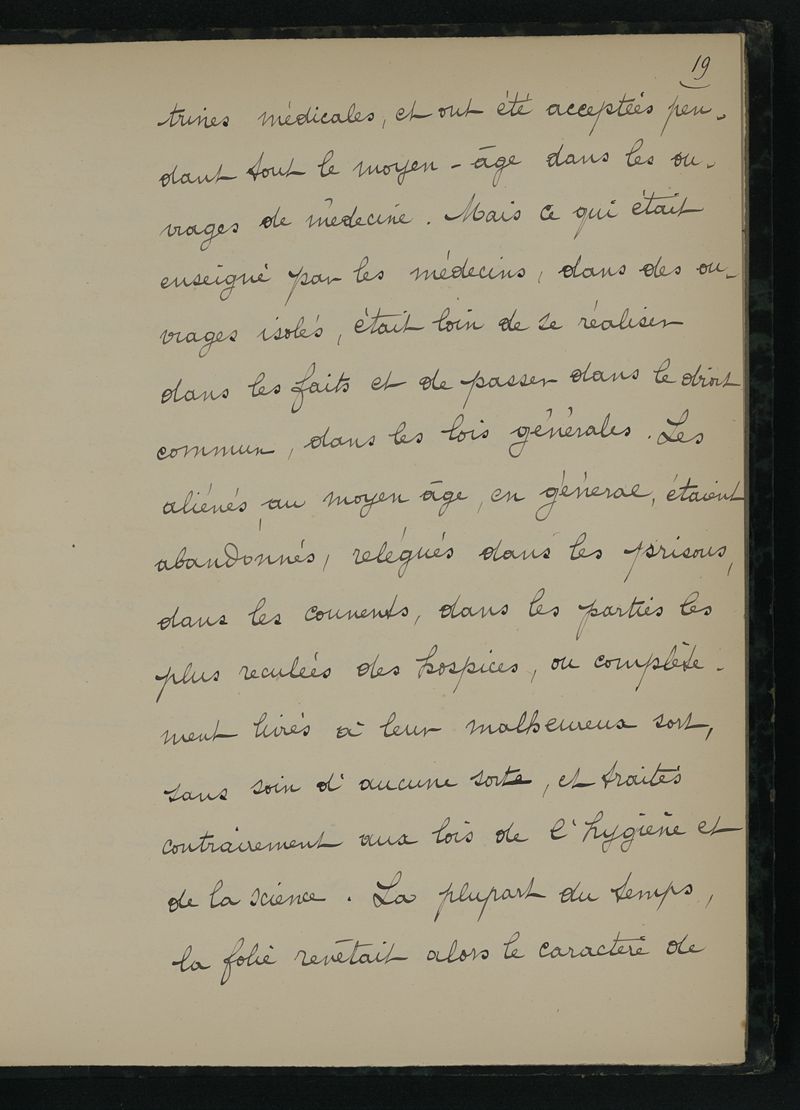 19
trines médicales, et ont été acceptées pen-
dant tout le moyen-âge dans les ou-
vrages de médecine. Mais ce qui était
enseigné par les médecins, dans des ou-
vrages isolés, était loin de se réaliser
dans les faits et de passer dans le droit
commun, dans les lois générales. Les
aliénés, au moyen âge, en général, étaient
abandonnés, relégués dans les prisons,
dans les couvents, dans les parties les
plus reculées des hospices, ou complète-
ment livrés à leur malheureux sort,
sans soin d'aucune sorte, et traités
contrairement aux lois de l'hygiène et
de la science. La plupart du temps,
la folie revêtait alors le caractère de